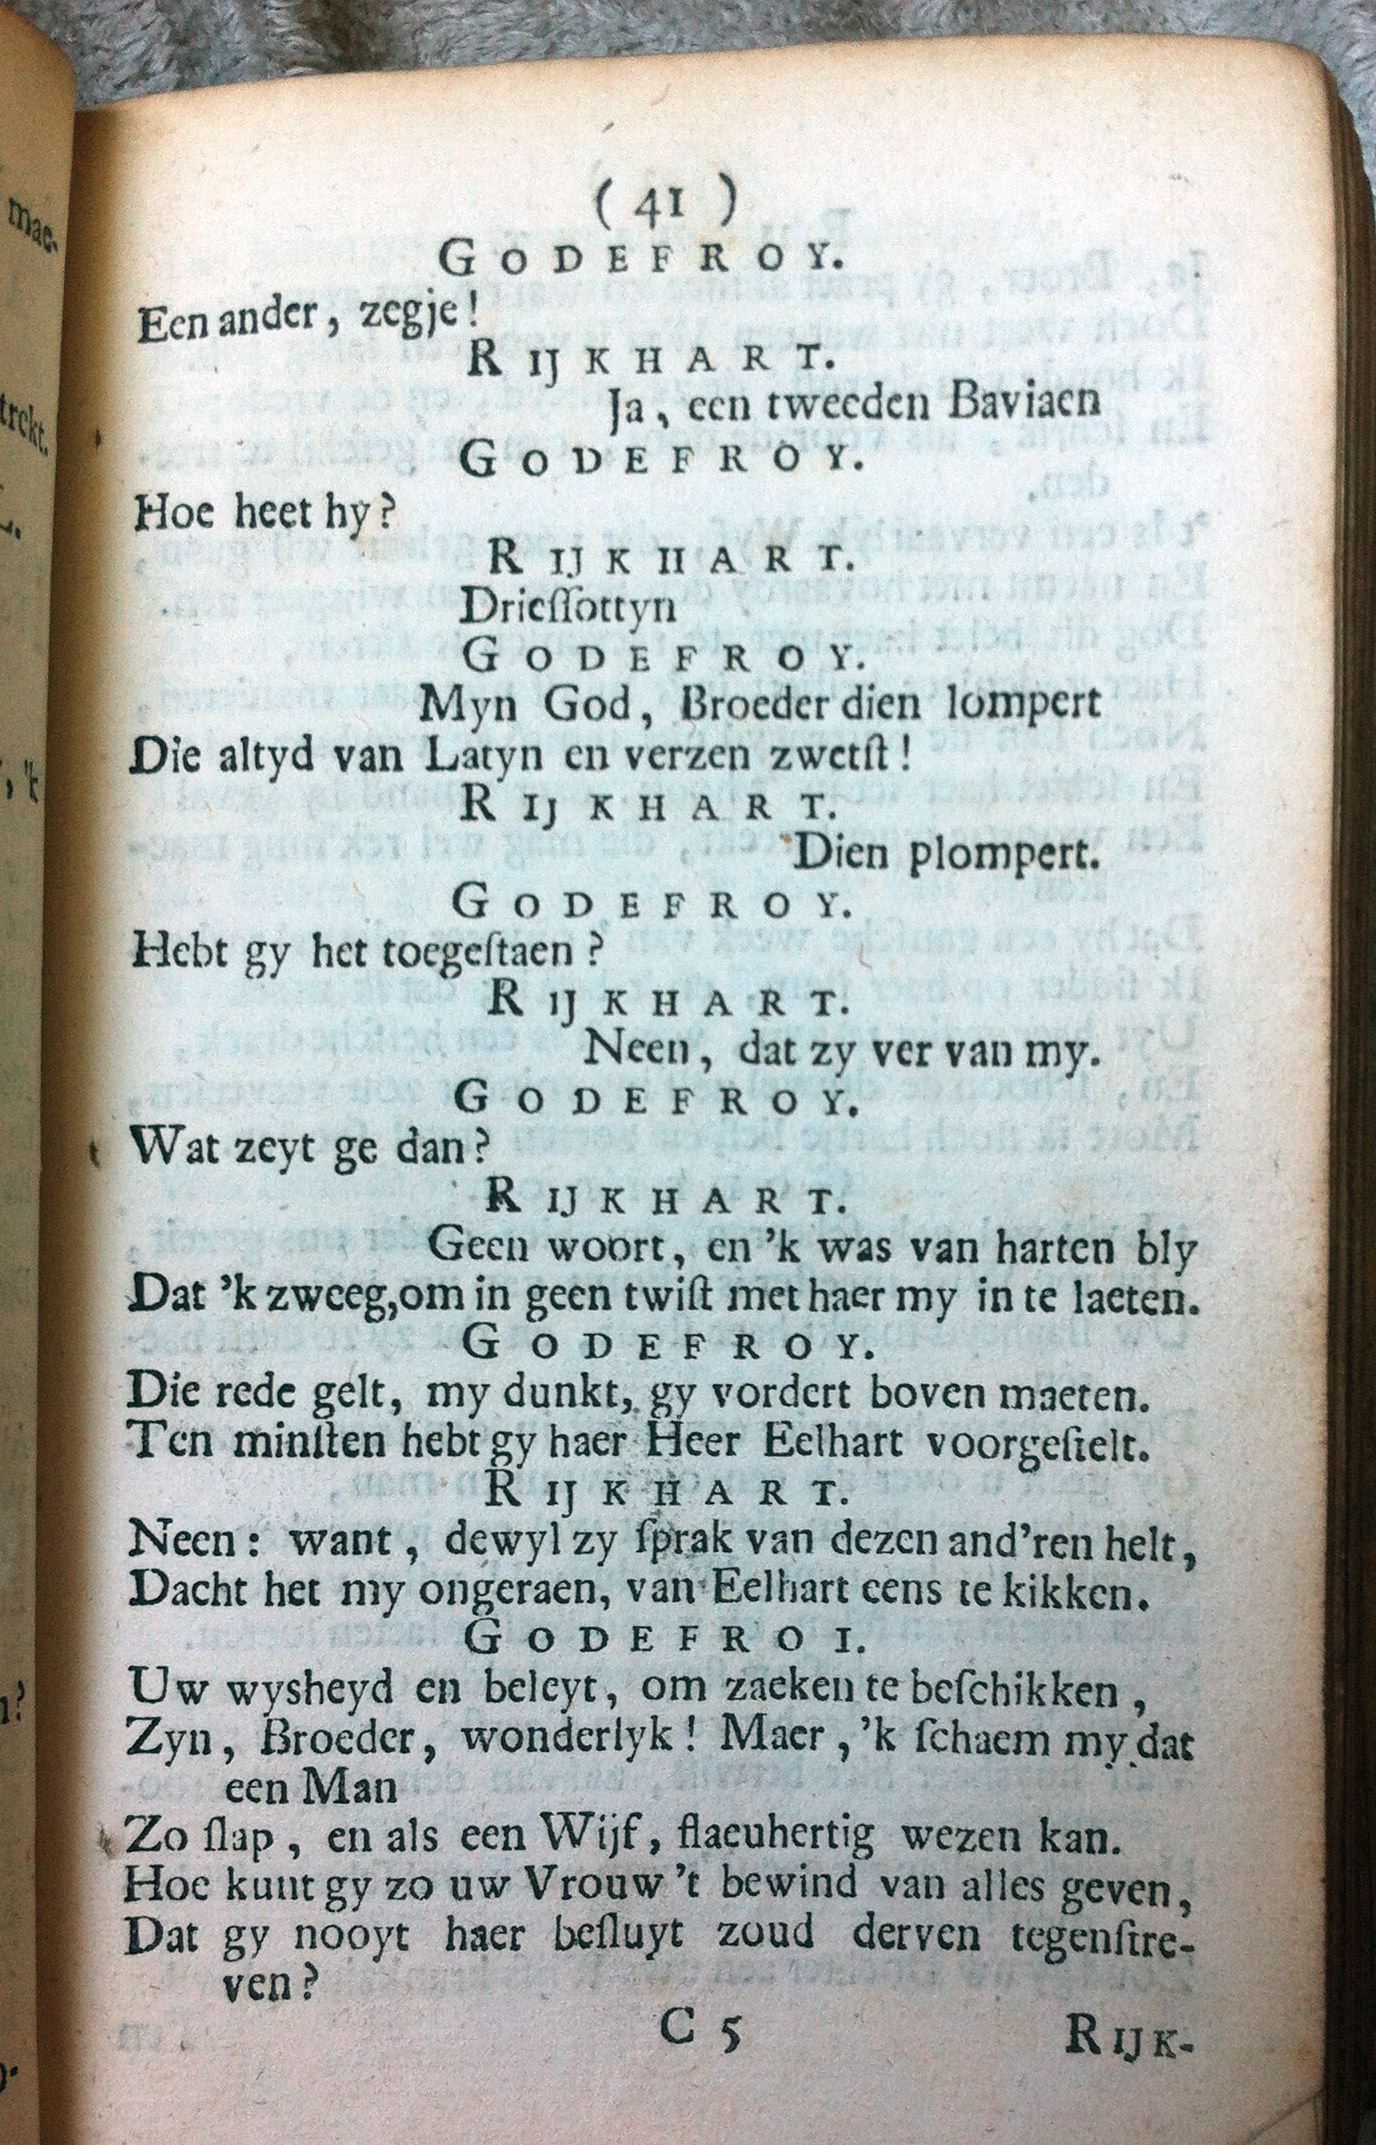 ( 41 )
GODEFROY.
Een ander, zegje!
RIJKHART.
Ja, een tweeden Baviaen
GODEFROY.
Hoe heet hy?
RIJKHART.
Drieſſottyn
GODEFROY.
Myn God, Broeder dien lompert
Die altyd van Latyn en verzen zwetſt!
RIJKHART.
Dien plompert.
GODEFROY.
Hebt gy het toegeſtaen?
RIJKHART.
Neen, dat zy ver van my.
GODEFROY.
Wat zeyt ge dan?
RIJKHART.
Geen woort, en 'k was van harten bly
Dat 'k zweeg, om in geen twiſt met haer my in te laeten.
GODEFROY.
Die rede gelt, my dunkt, gy vordert boven maeten.
Ten minſten hebt gy haer Heer Eelhart voorgeſtelt.
RIJKHART.
Neen: want, dewyl zy ſprak van dezen and'ren helt,
Dacht het my ongeraen, van Eelhart eens te kikken.
GODEFROI.
Uw wysheyd en beleyt, om zaeken te beſchikken,
Zyn, Broeder, wonderlyk! Maer, 'k ſchaem my dat
een Man
Zo ſlap, en als een Wijf, flaeuhertig wezen kan.
Hoe kunt gy zo uw Vrouw 't bewind van alles geven,
Dat gy nooyt haer beſluyt zoud derven tegenſtre-
ven?
C 5
RIJK-